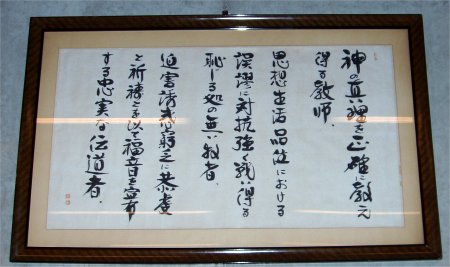 神の真理を正確に教え
得る教師、
思想生活品性における
誤謬に対抗強く戦い得る
恥じる処の無い牧者、
迫害誘惑窮乏に恭虔
と祈祷とを以て福音を宣布
する忠実な伝道者、